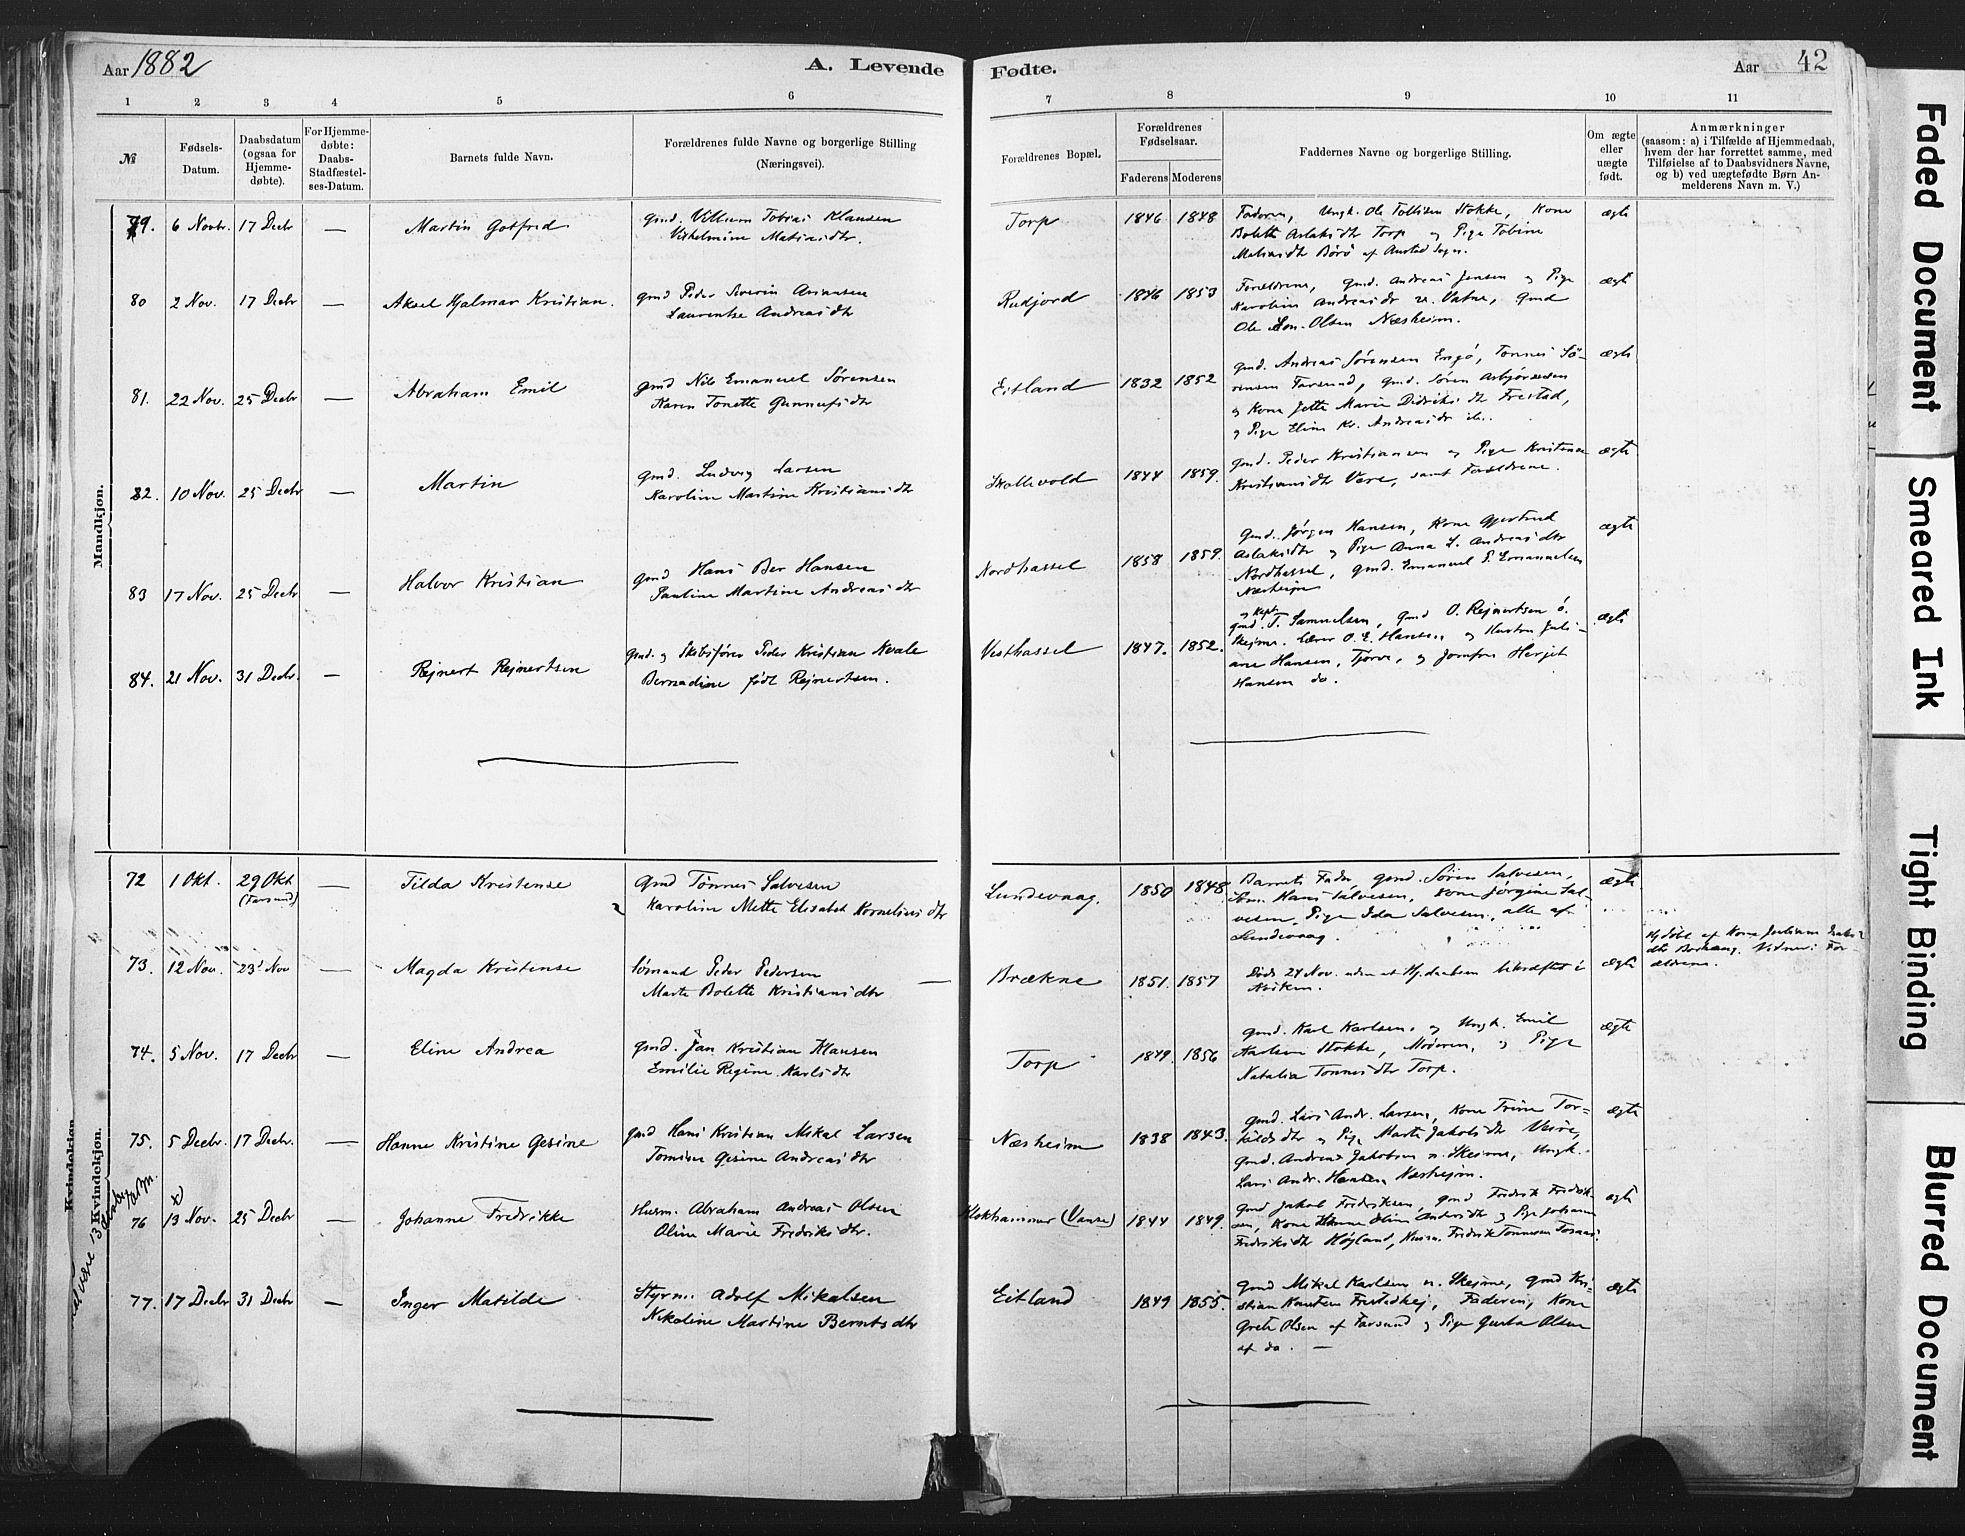 Aar 1882
A. Levende
Fødte.
Aar 42
1 2 3 4 5 6 7 8 9 10 11
№
Fødsels-
Datum.
Daabsdatum
(ogsaa for
Hjemme-
døbte).
For Hjemme-
døbte:
Daabs-
Stadfæstel-
ses-Datum.
Barnets fulde Navn.
Forældrenes fulde Navne og borgerlige Stilling
(Næringsvei).
Forældrenes Bopæl.
Forældrenes
Fødselsaar.
Faderens Moderens
Faddernes Navne og borgerlige Stilling.
Om ægte
eller
uægte
født.
Anmærkninger
(saasom: a) i Tilfælde af Hjemmedaab,
hvem der har forrettet samme, med
Tilføielse af to Daabsvidners Navne,
og b) ved uægtefødte Børn An-
melderens Navn m. V.)
Mandkjøn.
79. 6 Novbr. 17 Decbr — Martin Gotfred
gmd. Villum Tobias Klausen
Vilhelmine Matiasdtr.
Torp 1846 1848
Faderen, Ungk. Ole Tollisen Stokke, Kone
Bolette Aslaksdtr Torp og Pige Tobine
Matiasdtr Børø af Austad Sogn.
ægte
80 2 Nov. 17 Decbr — Aksel Hjalmar Kristian.
gmd Peder Severin
Laurentse Andreasdtr
Rudjord 1846 1853
Forældrene, Gmd. Andreas Jensen og Pige
Karoline Andreasdr Vatne, Gmd
Ole Olsen Næsheim.
ægte
81. 22 Nov. 25 Decbr — Abraham Emil
gmd Nils Emanuel Sørensen
Karen Tonette Gunnufsdtr
Eitland 1832 1852
gmd. Andreas Sørensen Engø, Tønnes Sø-
rensen Farsund, gmd. Søren Asbjørnsen
og Kone Jette Marie Didriksdtr Frestad,
og Pige Eline Kr. Andreasdr
ægte
82. 10 Nov. 25 Decbr — Martin
gmd. Ludvig Larsen
Karoline Martine Kristiansdtr
Skollevold 1844 1859.
gmd. Peder Kristiansen og Pige Kristense
Kristiansdtr Vere, samt Forældrene.
ægte
83 17 Nov. 25 Decbr — Halvor Kristian
gmd Hans Ber Hansen
Pauline Martine Andreasdtr
Nordhassel 1858 1859.
Gmd. Jørgen Hansen, Kone Gjertrud
Aslaksdtr og Pige Anna L. Andreasdtr
Nordhassel, gmd. Emanuel P. Emanuelsen
Næsheim
ægte
84. 21 Nov. 31 Decbr. — Rejnert Rejnertsen
Gmd. og Skibsfører Peder Kristian Kvale
Bernadine født Rejnertsen.
Vesthassel 1847. 1852.
og Kapt.
gmd. T. Samuelsen, gmd O. Rejnertsen ø.
Skejme. Lærer O. E. Hansen og Hustru Juli-
ane Hansen, Tjørve, og Jomfru Herjet
Hansen do.
ægte
Kvindekjøn.
72 1 Okt. 29 Okt — Tilda Kristense
(Farsund)
Gmd Tønnes Salvesen
Karoline Mette Elisabet Korneliusdtr
Lundevaag. 1850 1848.
Barnets Fader gmd. Søren Salvesen,
Hans Salvesen, Kone Jørgine Sal-
vesen, Pige Ida Salvesen, alle af
Lundevaag.
ægte
73. 12 Nov. 23 Nov — Magda Kristense
Sømand Peder Pedersen
Marte Bolette Kristiansdtr —
Brækne 1851. 1857
Døde 24 Nov. uden at Hj.daaben bekræftet i
Kirken.
ægte
Hj. døbt af Kone Juliane
dtr Vidner: For-
ældrene.
74. 5 Nov. 17 Decbr — Eline Andrea
gmd. Jan Kristian Klausen
Emilie Regine Karlsdtr
Torp 1849. 1856
gmd. Karl Karlsen. og Ungk. Emil
Karlsen Stokke, Moderen, og Pige
Natalia Tønnesdtr Torp.
ægte
75. 5 Decbr. 17 Decbr. — Hanne Kristine Gesine
gmd Hans Kristian Mikal Larsen
Tomine Gesine Andreasdtr
Næsheim 1838 1843.
gmd. Lars Andr. Larsen, Kone Trine Tor-
kildsdtr og Pige Marte Jakobsdtr Vere,
gmd. Andreas Jakobsen n. Skejme, Ungk.
Lars Andr. Hansen Næsheim.
ægte
76 13 Nov. 25 Decbr — Johanne Fredrikke
Husm. Abraham Andreas Olsen
Oline Marie Fredriksdtr.
(Vanse) 1844 1849.
Gmd Jakob Fredriksen, gmd Fredrik Fredrik-
sen, Kone Hanne Eline Andersdtr og Pige Johanne
Fredriksdtr Høyland, Husm. Fredrik Tønnesen
ægte
77. 17 Decbr 31 Decbr — Inger Matilde
Styrm. Adolf Mikalsen
Nikoline Martine Berntsdtr
Eitland 1849 1855.
gmd Mikal Karlsen n. Skejme, gmd Kri-
stian Knutsen Frestadhej, Faderen, Kone
Grete Olsen af Farsund og Pige Olsen
af do. —
ægte
Faded Document
Smeared Ink
Tight Binding
Blurred Document